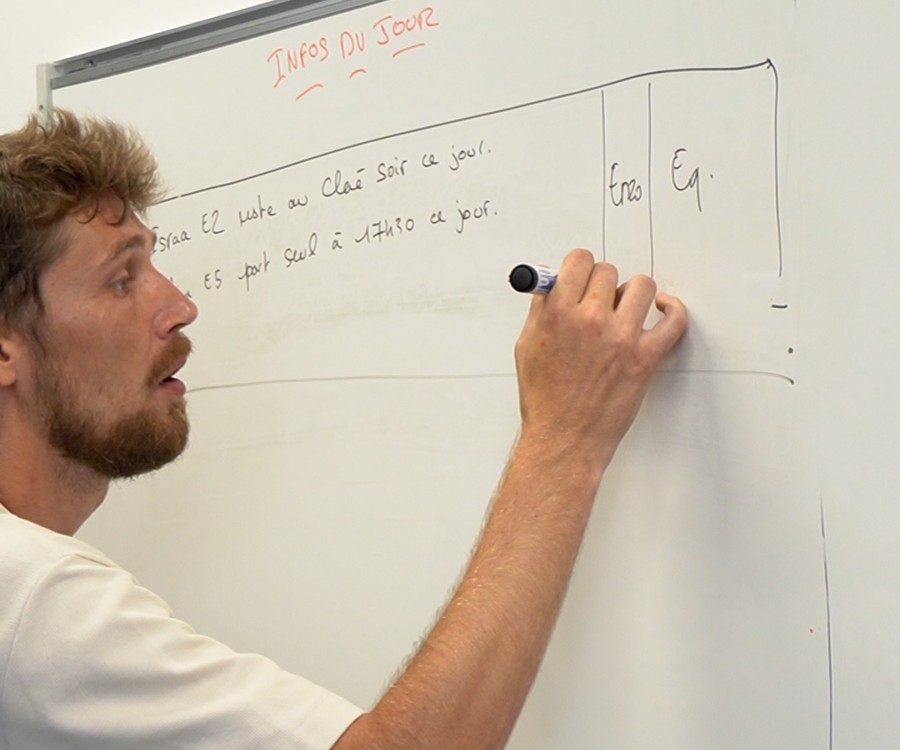 INFOS DU JOUR
E2 reste au Claé soir ce jour.
E5 part seul à 17h30 ce jour.
Eq.